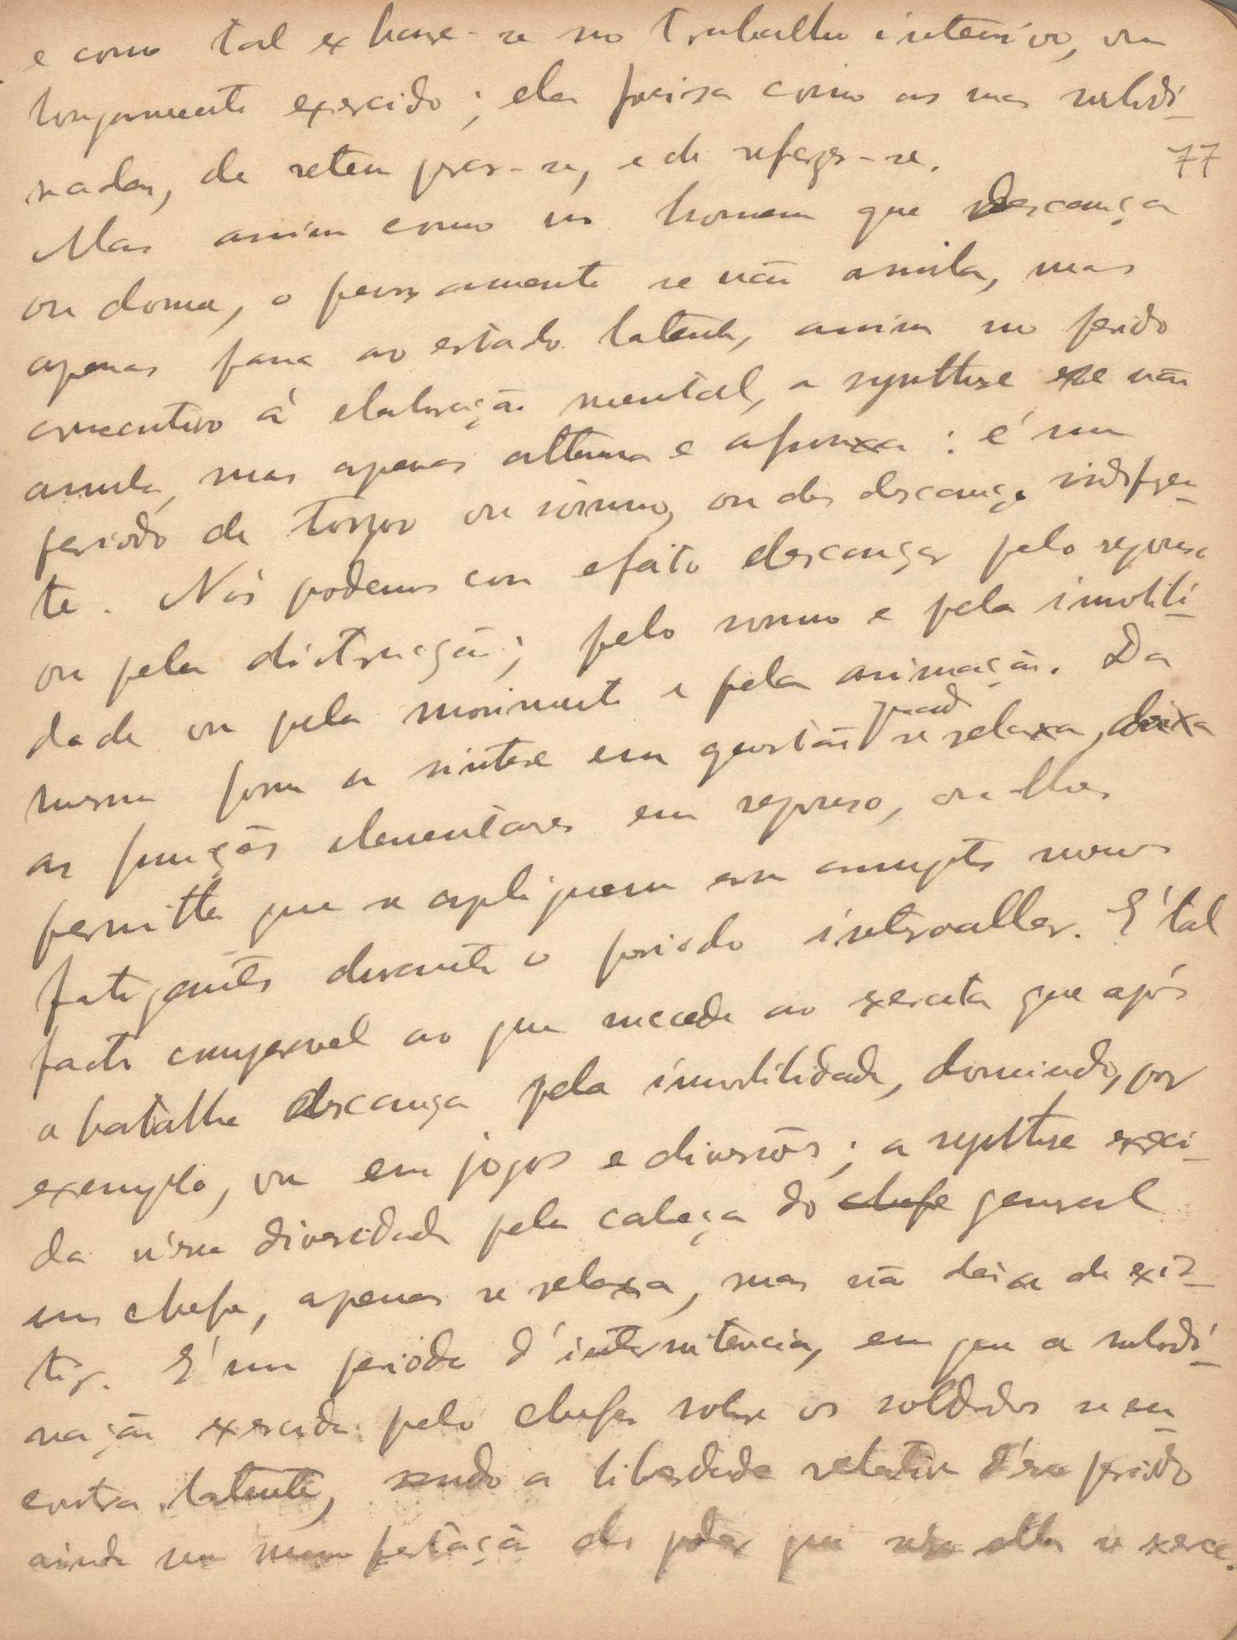 e como tal exhaure-se no trabalho intensivo, ou
longamente exercido; ela precisa como as suas subordi-
nadas, de retemperar-se, e de refazer-se.
77
Mas assim como no homem que descança
ou dorme, o pensamento se não anula, mas
apenas passa ao estado latente, assim no periodo
consecutivo á elaboração mental, a synthese se não
anula, mas apenas attenua e afrouxa: é um
periodo de torpor ou somno, ou de descanço indifferen-
te. Nós podemos com efeito descançar pelo repouso
ou pela distracção; pelo somno e pela imobili-
dade ou pelo movimento e pela animação. Da
mesma forma a sintese em questão quando se relaxa, deixa
as funções elementares em repouso, ou lhes
permitte que se apliquem em assumptos menos
fatigantes durante o periodo intervallar. É tal
facto comparavel ao que succede ao exercito que após
a batalha descança pela imobilidade, dormindo, por
exemplo, ou em jogos e diversões; a synthese exerci-
da n'essa diversidade pela cabeça do chefe general
em chefe, apenas se relaxa, mas não deixa de exis-
tir. É um periodo d'intermitencia, em que a subordi-
nação exercida pelo chefe sobre os soldados se en
contra latente, sendo a liberdade relativa d'esse periodo
ainda uma manifestação do poder que sobre elles se exerce.